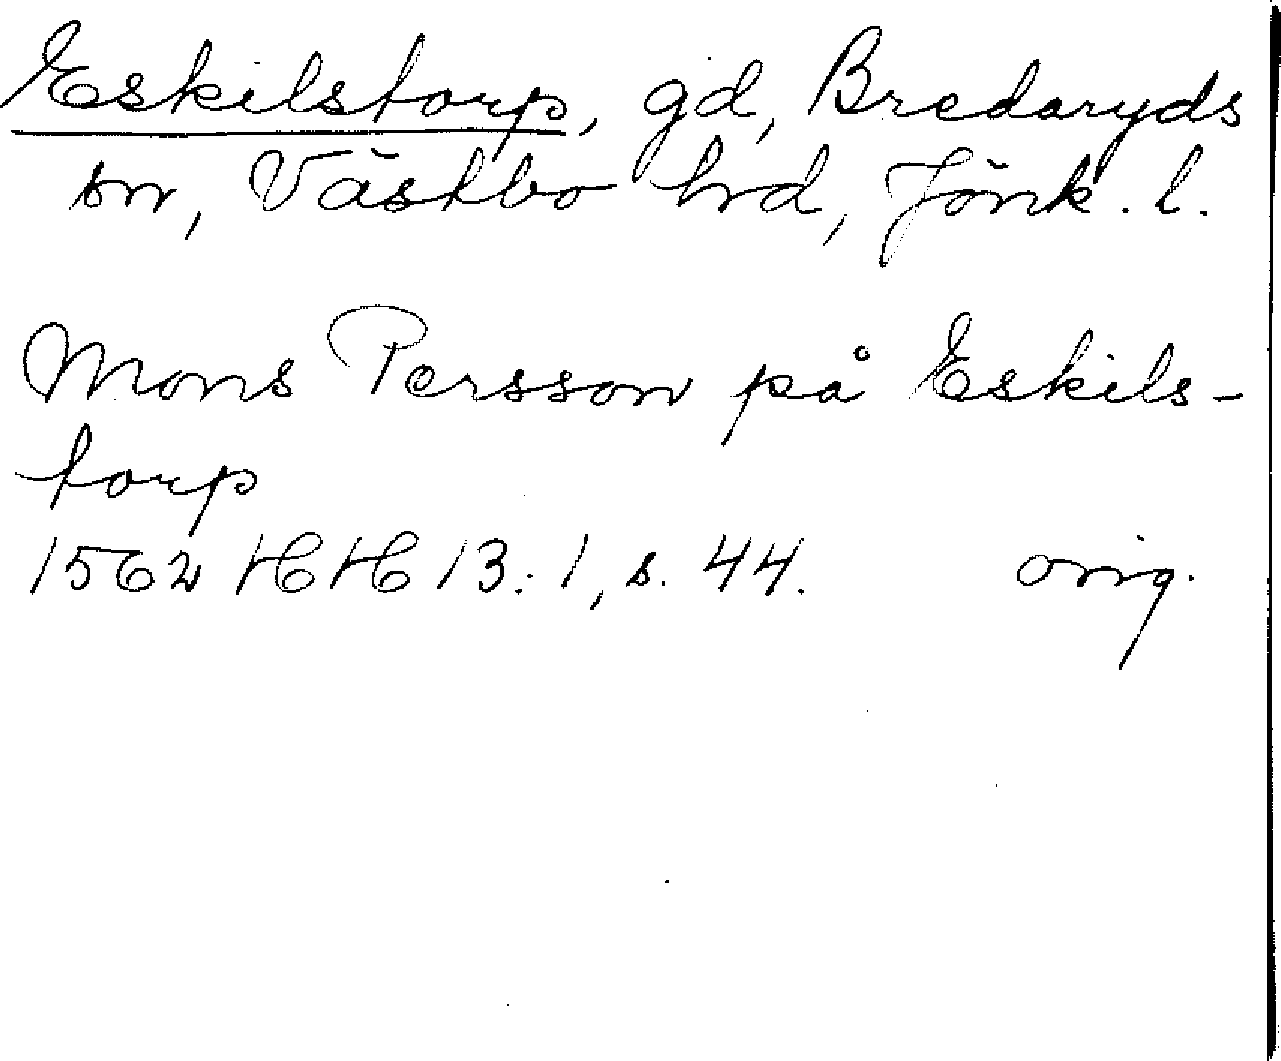 Eskilstorp, gd, Bredaryds
sn, Västbo hrd, Jönk. l.
Mons Persson på Eskils-
torp
1562 HH 13:1, s. 44. orig.